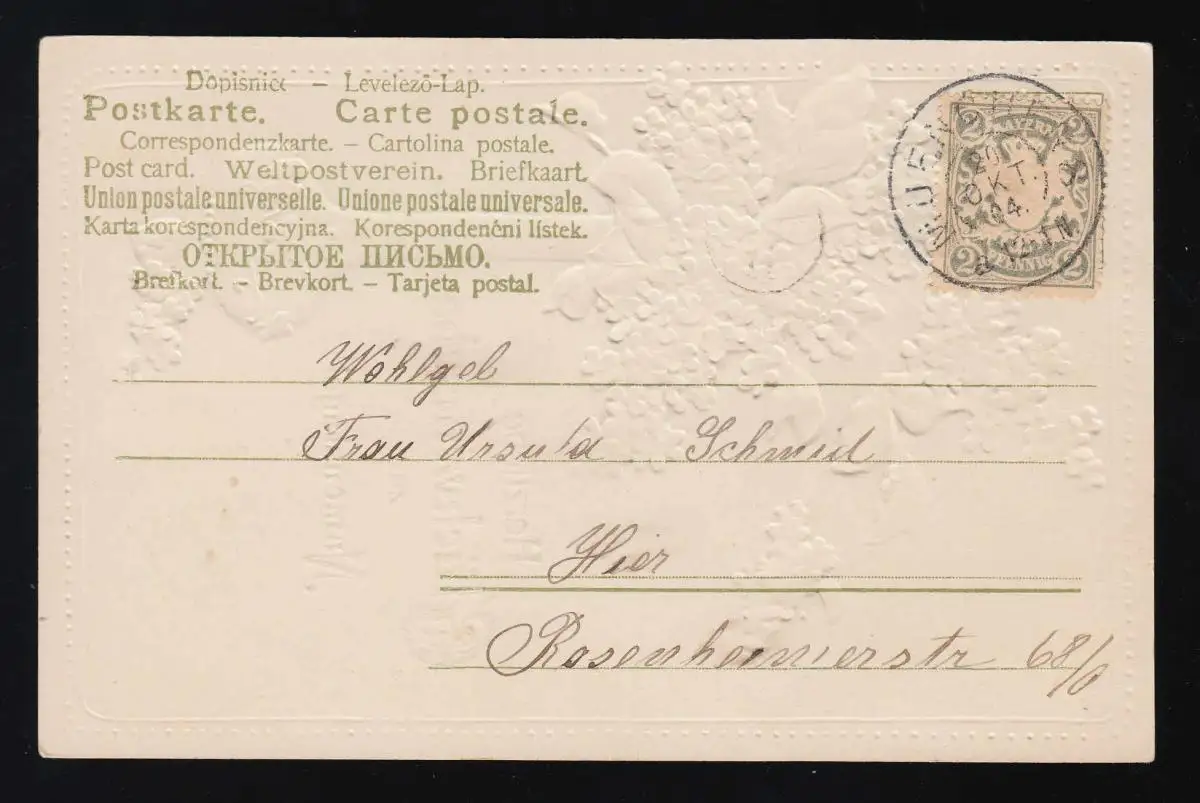 Dopisnice – Levelezö-Lap.
Postkarte. Carte postale.
Correspondenzkarte. – Cartolina postale.
Post card. Weltpostverein. Briefkaart.
Union postale universelle. Unione postale universale.
Karta korespondencyjna. Korespondenční lístek.
ОТКРЫТОЕ ПИСЬМО.
Brefkort. – Brevkort. – Tarjeta postal.
2 2
MUENCHEN
20
OKT.
04.
2 PFENNIG 2
Wohlgel
Frau Ursula Schmid
Hier
Rosenheimerstr 68/0